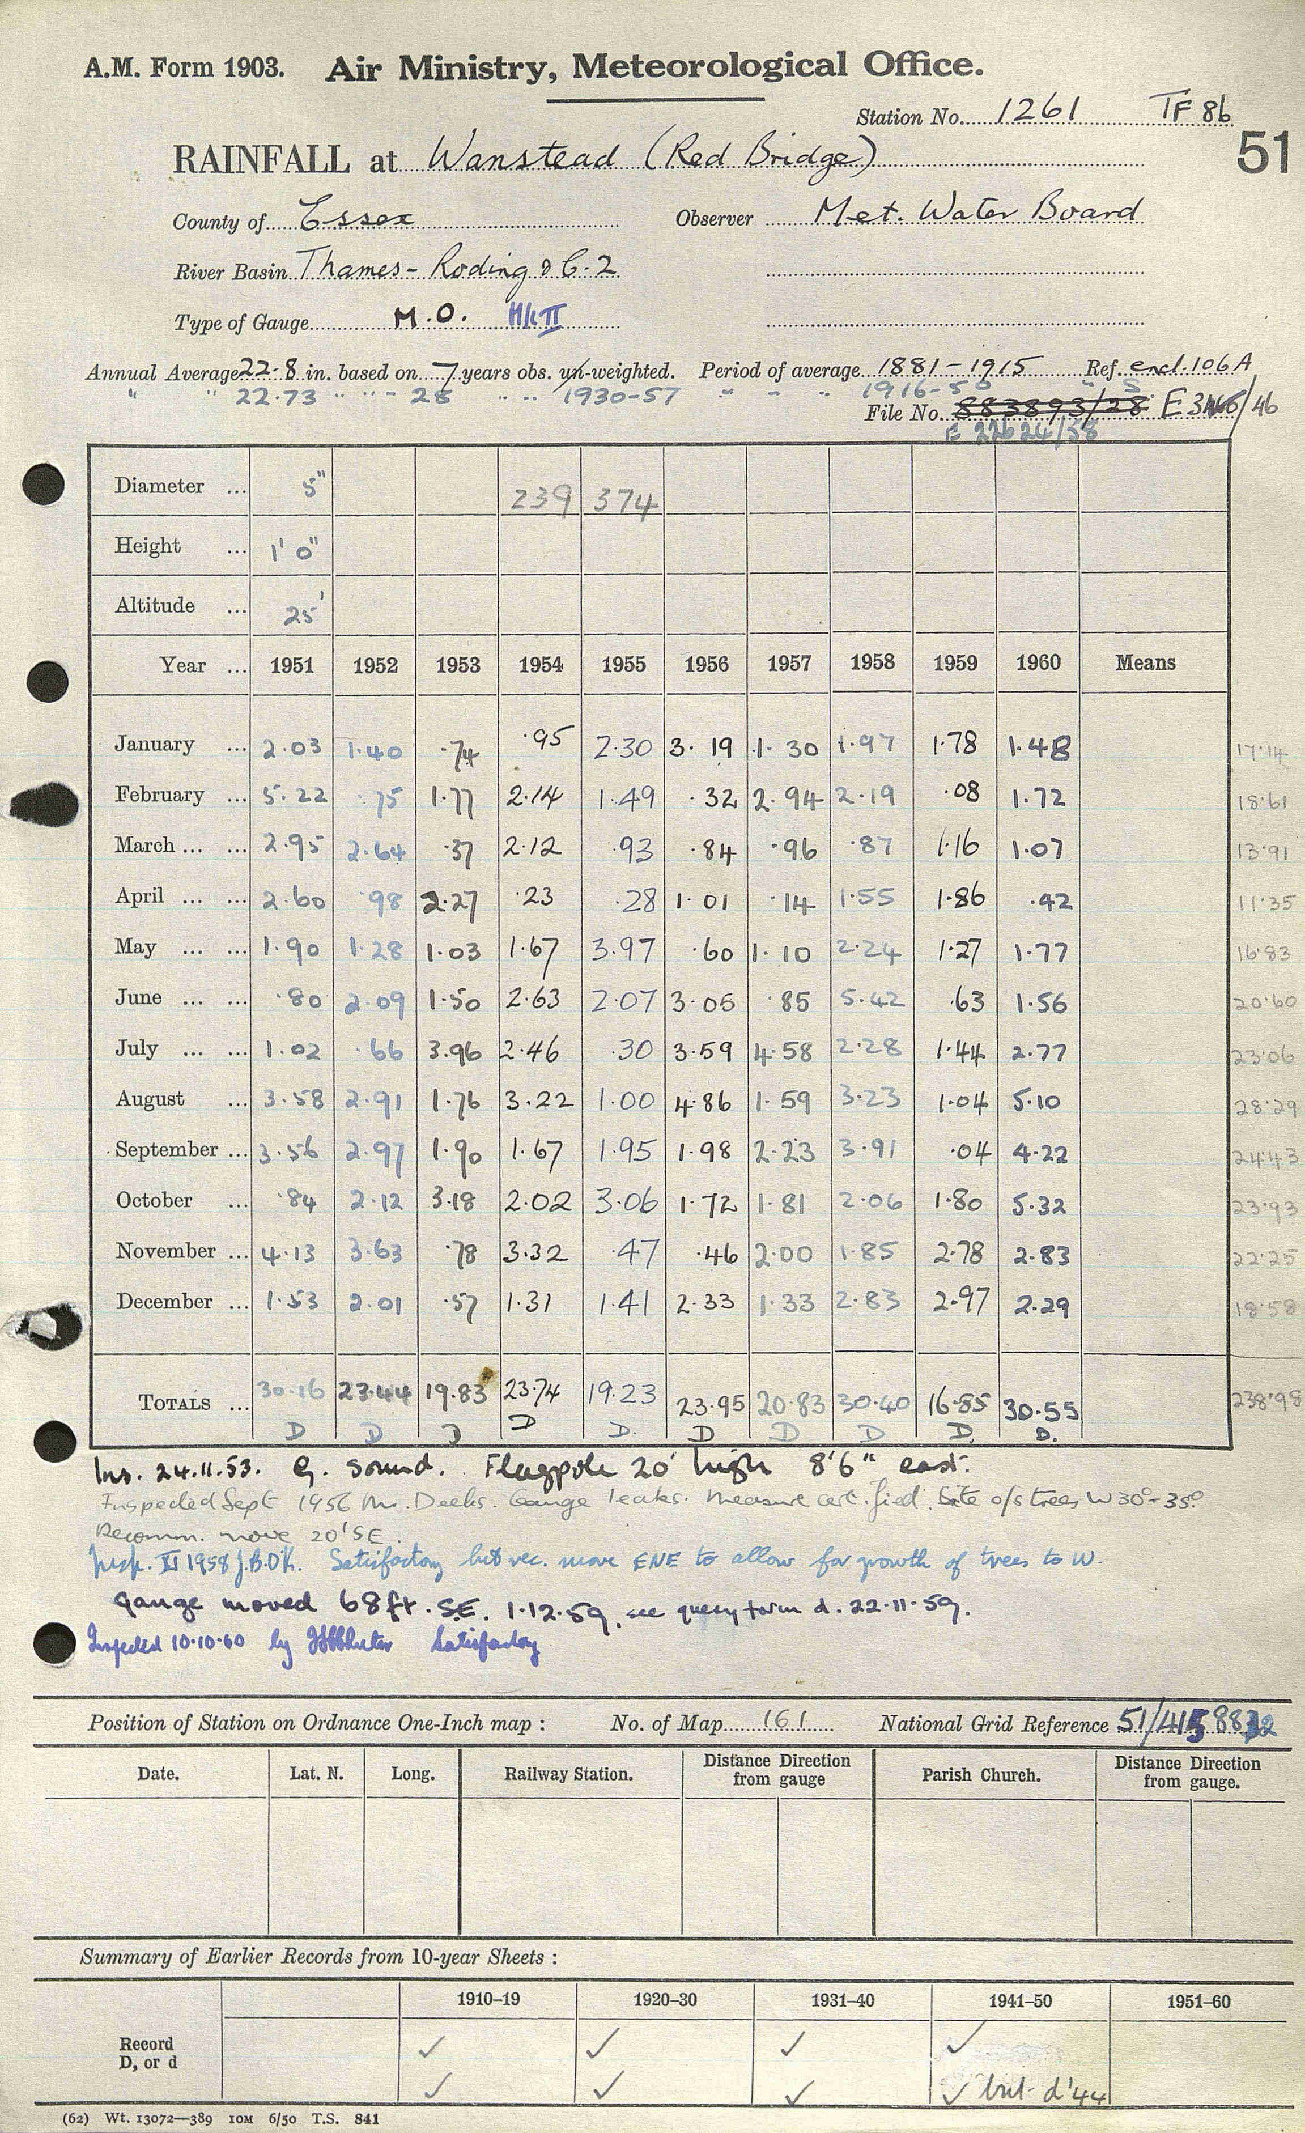 A.M. Form 1903. Air Ministry, Meteorological Office.
Station No. 1261 TF 8b
51
RAINFALL at Wanstead (Red Bridge)
County of Essex Observer Met. Water Board
River Basin Thames - Roding & C-2
Type of Gauge M.O. MkII
Annual Average 22.8 in. based on 7 years obs. un-weighted. Period of average 1881-1915 Ref. encl. 106A
" " 22.73 " " - 28 " " 1930-57 " " " 1916-5
File No. 883893/28 E 3 /46
E 22624/38
Diameter ... 5" 239 374
Height ... 1' 0"
Altitude ... 25'
Year ... 1951 1952 1953 1954 1955 1956 1957 1958 1959 1960 Means
January ... 2.03 1.40 .74 .95 2.30 3.19 1.30 1.97 1.78 1.48 17.14
February ... 5.22 .75 1.77 2.14 1.49 .32 2.94 2.19 .08 1.72 18.61
March ... ... 2.95 2.64 .37 2.12 .93 .84 .96 .87 1.16 1.07 13.91
April ... ... 2.60 .98 2.27 .23 .28 1.01 .14 1.55 1.86 .42 11.35
May ... ... 1.90 1.28 1.03 1.67 3.97 .60 1.10 2.24 1.27 1.77 16.83
June ... ... .80 2.09 1.50 2.63 2.07 3.05 .85 5.42 .63 1.56 20.60
July ... ... 1.02 .66 3.96 2.46 .30 3.59 4.58 2.28 1.44 2.77 23.06
August ... 3.58 2.91 1.76 3.22 1.00 4.86 1.59 3.23 1.04 5.10 28.29
September ... 3.56 2.97 1.90 1.67 1.95 1.98 2.23 3.91 .04 4.22 24.43
October ... .84 2.12 3.18 2.02 3.06 1.72 1.81 2.06 1.80 5.32 23.93
November ... 4.13 3.63 .78 3.32 .47 .46 2.00 1.85 2.78 2.83 22.25
December ... 1.53 2.01 .57 1.31 1.41 2.33 1.33 2.83 2.97 2.29 18.58
TOTALS ... 30.16 23.44 19.83 23.74 19.23 23.95 20.83 30.40 16.85 30.55 238.98
D D D D D. D D D D. D.
Ins. 24.11.53. G. sound. Flagpole 20' high 8'6" east.
Inspected Sept 1956 Mr. Deeks. Gauge leaks. Measure cert. fied. Site o/s trees W 30°-35°
Recomm. move 20' SE.
Insp. XI 1958 J.B.O'K. Satisfactory but rec. move ENE to allow for growth of trees to W.
Gauge moved 68ft. S.E. 1.12.59, see query form d. 22.11.59.
Inspected 10.10.60 by Satisfactory
Position of Station on Ordnance One-Inch map : No. of Map 161 National Grid Reference 51/415 88
Date. Lat. N. Long. Railway Station. Distance Direction from gauge Parish Church. Distance Direction from gauge.
Summary of Earlier Records from 10-year Sheets :
1910–19 1920–30 1931–40 1941–50 1951–60
Record ✓ ✓ ✓ ✓
D, or d ✓ ✓ ✓ ✓ but d '44
(62) Wt. 13072—389 10M 6/50 T.S. 841